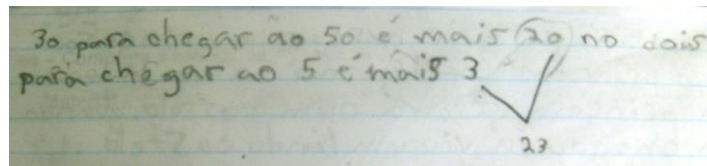 30 para chegar ao 50 é mais 20 no dois
para chegar ao 5 é mais 3
23